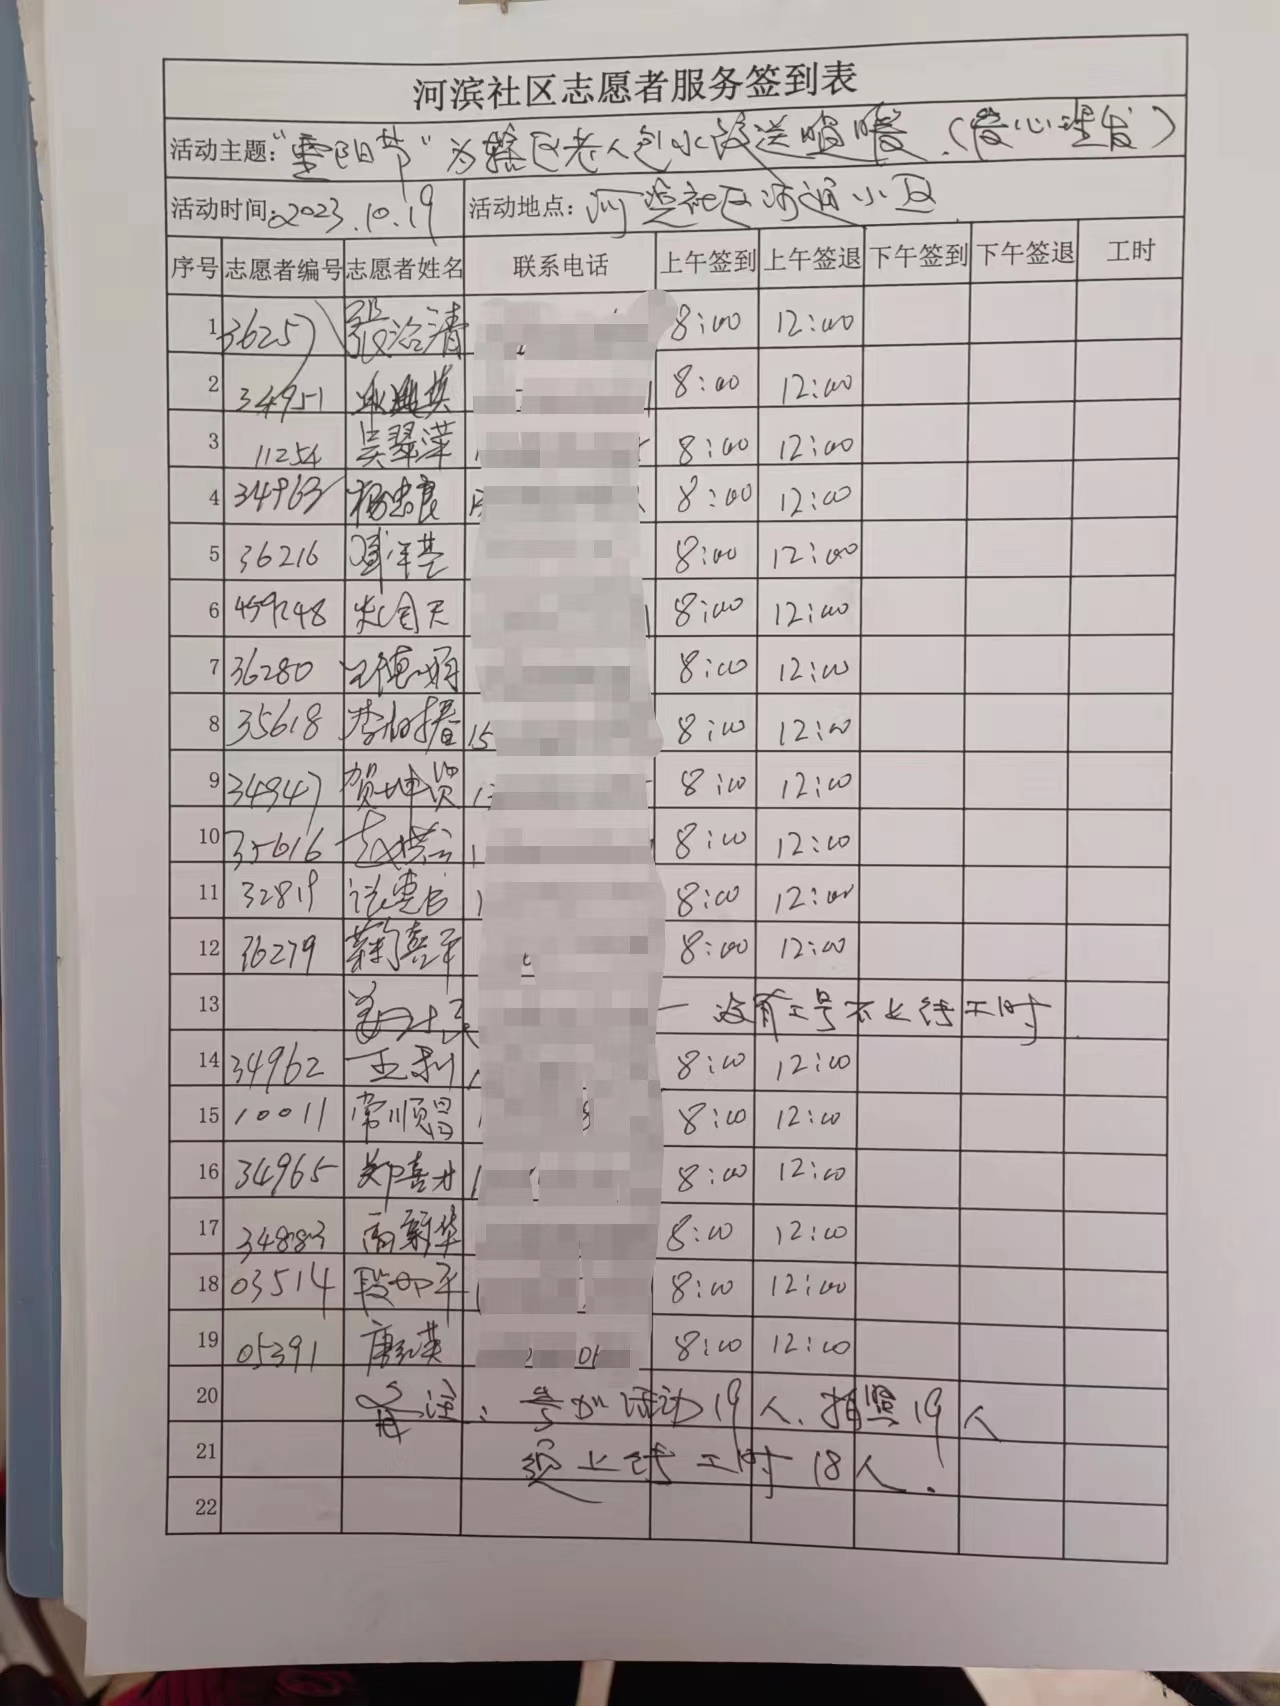 河滨社区志愿者服务签到表
活动主题:"重阳节"为辖区老人包水饺送温暖.(爱心理发)
活动时间:2023.10.19 活动地点:河滨社区河通小区
序号 志愿者编号 志愿者姓名 联系电话 上午签到 上午签退 下午签到 下午签退 工时
1 36257 张治清 8:00 12:00
2 34951 8:00 12:00
3 11254 吴翠萍 8:00 12:00
4 34963 杨忠良 8:00 12:00
5 36216 8:00 12:00
6 8:00 12:00
7 36280 8:00 12:00
8 35618 李树春 15 8:00 12:00
9 34947 贺坤贤 8:00 12:00
10 35616 8:00 12:00
11 32819 8:00 12:00
12 36279 鞠喜平 8:00 12:00
13 一没有工号不上传工时
14 34962 王利 8:00 12:00
15 10011 常顺昌 8:00 12:00
16 34965 郑喜才 8:00 12:00
17 34883 高新华 8:00 12:00
18 03514 段如平 8:00 12:00
19 05391 唐红英 8:00 12:00
20 备注:参加活动19人.拍照19人
21 上传工时18人.
22